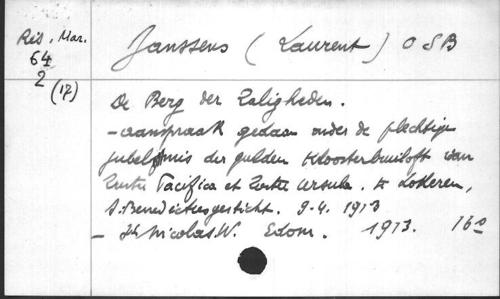 Ris. Mar.
64
2 (17)
Janssens (Laurent) O S B
De Berg der Zaligheden.
- aanspraak gedaan onder de plechtige
jubelmis der gulden Kloosterbruiloft van
Zuster Pacifica et Zuster Ursula. te Lokeren,
S. Benedictusgesticht. 9-4. 1913
- St Nicolas.W. Edom. 1913. 16°